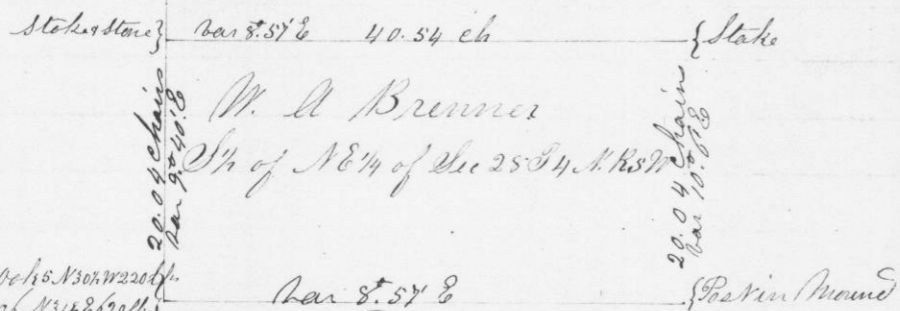 Stoke & Stone} var 8°.57' E 40.54 ch {Stake
20.04 chains
var 9°40' E
W. A Brenner
S½ of NE¼ of Sec 28 T4 N. R5W
20.04 chains
var 10°
N30½W
var 8°.57' E {Post in Mound